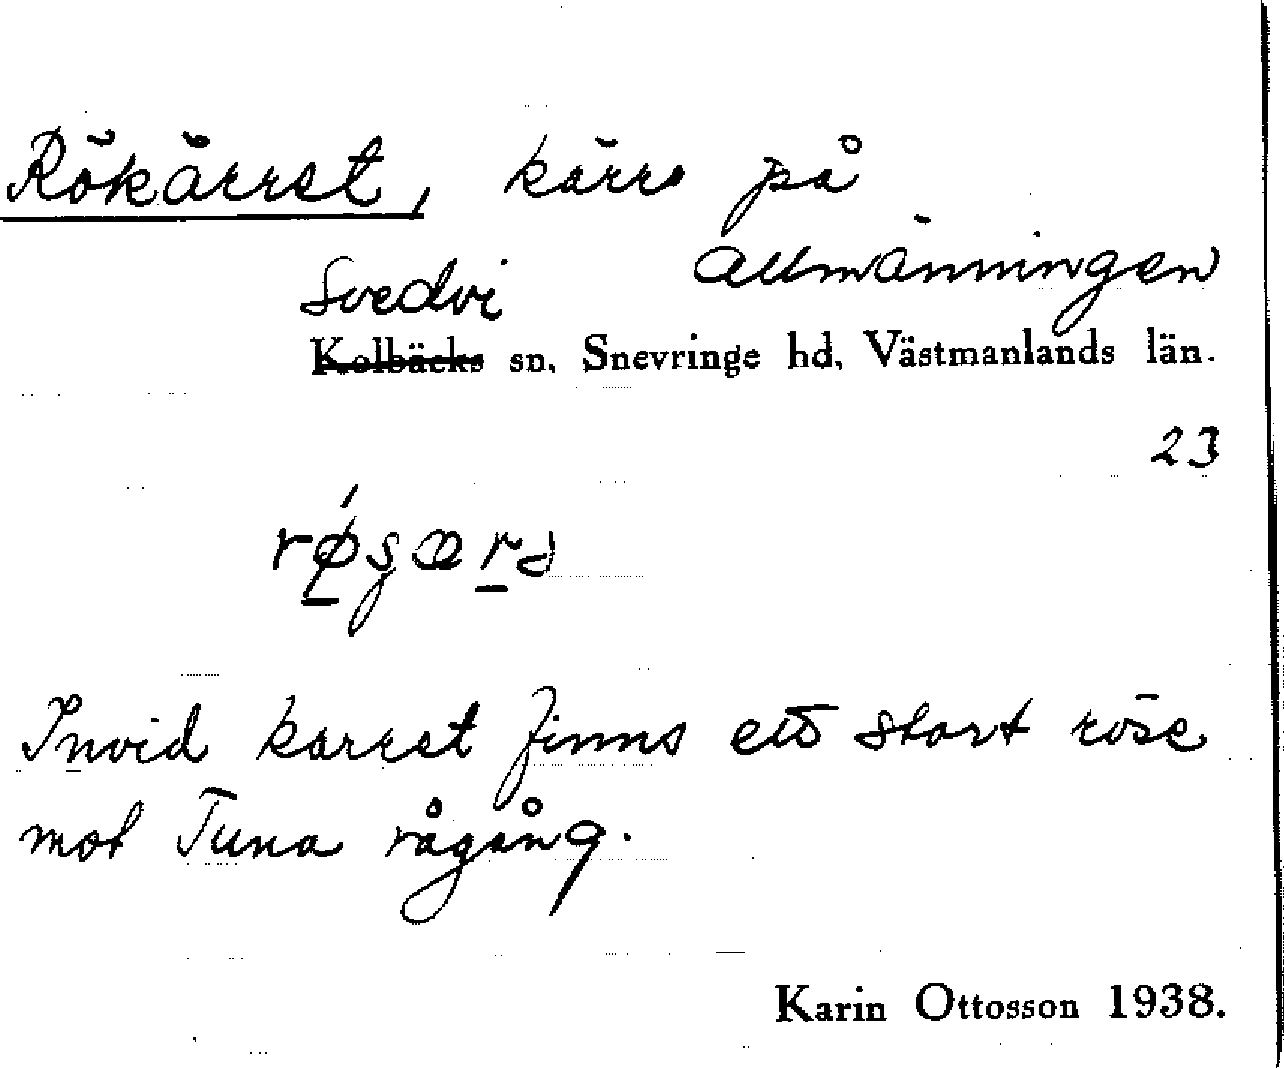 Rökärret, kärr på
allmänningen
Svedvi
Kolbäcks sn, Snevringe hd, Västmanlands län.
23
Invid kärret finns ett stort röse
mot Tuna rågång.
Karin Ottosson 1938.